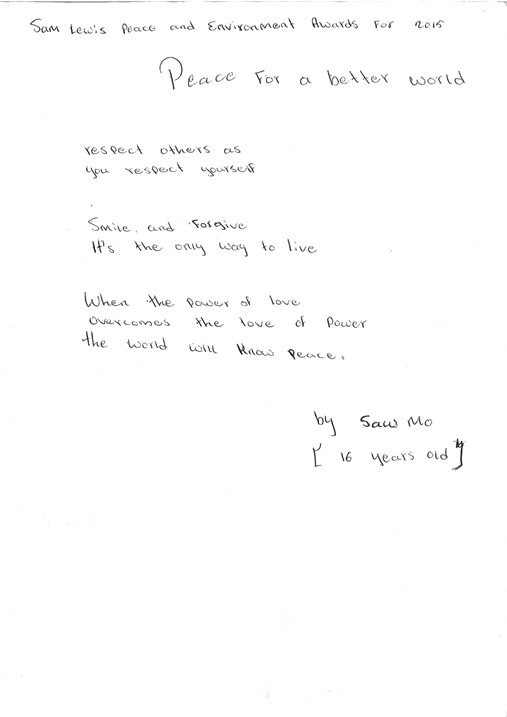 Sam Lewis Peace and Environment Awards For 2015
Peace For a better world
respect others as
you respect yourself
Smile, and Forgive
It's the only way to live
When the power of love
overcomes the love of power
the world will know peace.
by Saw Mo
[ 16 years old ]